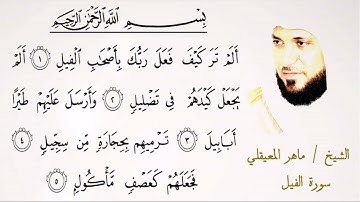 بِسْمِ اللَّهِ الرَّحْمَٰنِ الرَّحِيمِ
أَلَمْ تَرَ كَيْفَ فَعَلَ رَبُّكَ بِأَصْحَابِ الْفِيلِ ١ أَلَمْ
يَجْعَلْ كَيْدَهُمْ فِي تَضْلِيلٍ ٢ وَأَرْسَلَ عَلَيْهِمْ طَيْرًا
أَبَابِيلَ ٣ تَرْمِيهِم بِحِجَارَةٍ مِّن سِجِّيلٍ ٤
فَجَعَلَهُمْ كَعَصْفٍ مَّأْكُولٍ ٥
الشيخ / ماهر المعيقلي
سورة الفيل